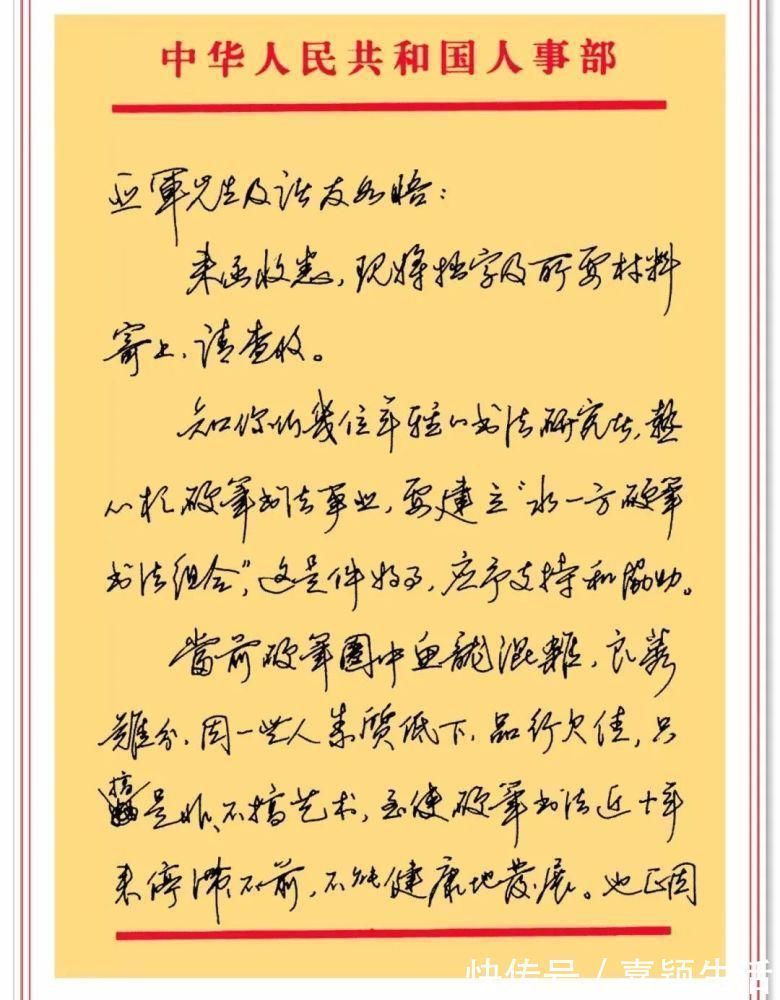 中华人民共和国人事部
亚軍先生及诸友如晤：
来函收悉，现将拙字及所要材料
寄上，请查收。
知你们幾位年轻的书法研究者，熱
心於硬筆书法事业，要建立“水一方硬筆
书法组合”，这是件好事，应予支持和协助。
當前硬筆圈中魚龍混雜，良莠
難分，因一些人素質低下，品行欠佳，只
搞是非，不搞艺术，至使硬筆书法近十年
来停滞不前，不能健康地發展。也正因
快传号 / 嘉颖生活